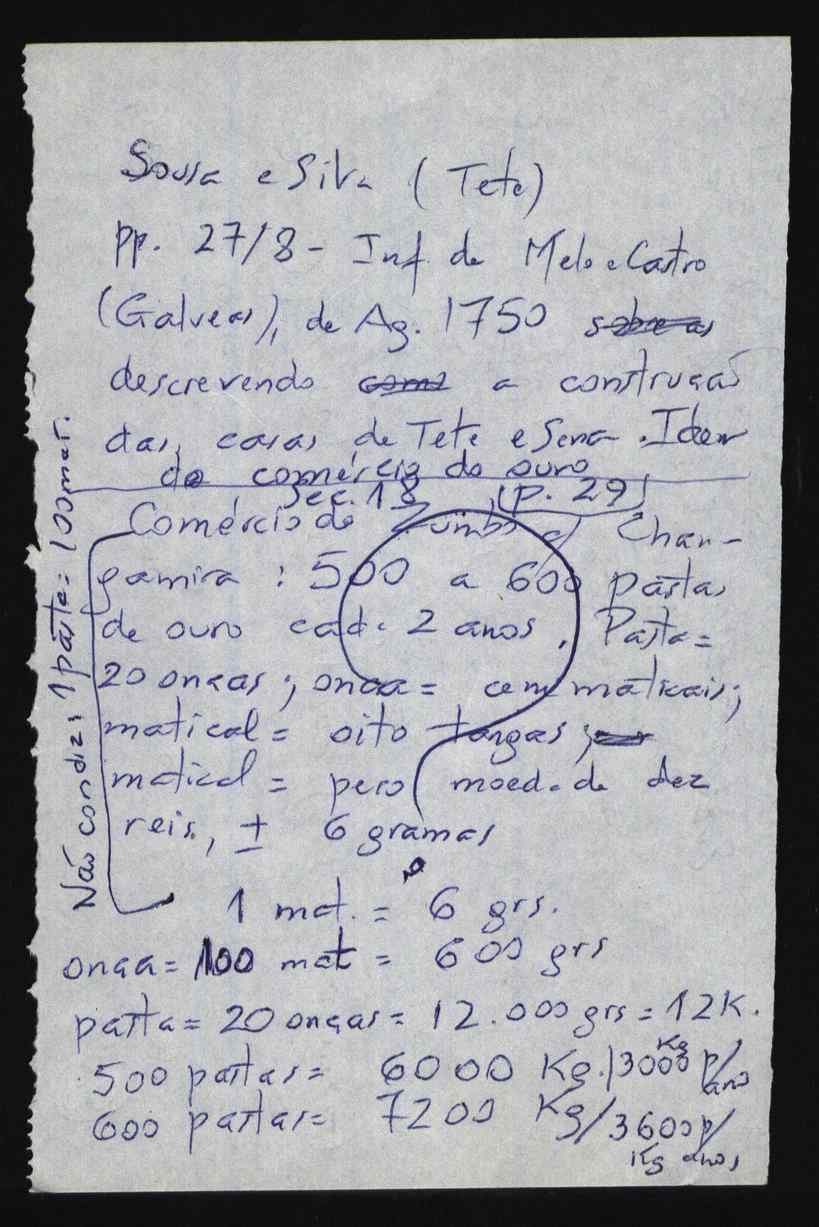 Sousa e Silva (Tete)
pp. 27/8 - Inf. de Melo e Castro
(Galveas), de Ag. 1750 sobre as
descrevendo como a construção
das casas de Tete e Sena. Idem
do comércio do ouro
Sec. 18 (p. 29)
Comércio do Zumbo c/ Chan-
gamira : 500 a 600 pastas
de ouro cada 2 anos. Pasta =
20 onças; onça = cem maticais;
matical = oito tangas;
matical = peso moeda de dez
reis, ± 6 gramas
Não condiz: 1 pasta = 100 mat.
1 mat. = 6 grs.
onça = 100 mat = 600 grs
pasta = 20 onças = 12.000 grs = 12K.
500 pastas = 6000 Kg./3000 Kg p/ ano
600 pastas = 7200 Kg/3600 p/
Kg anos